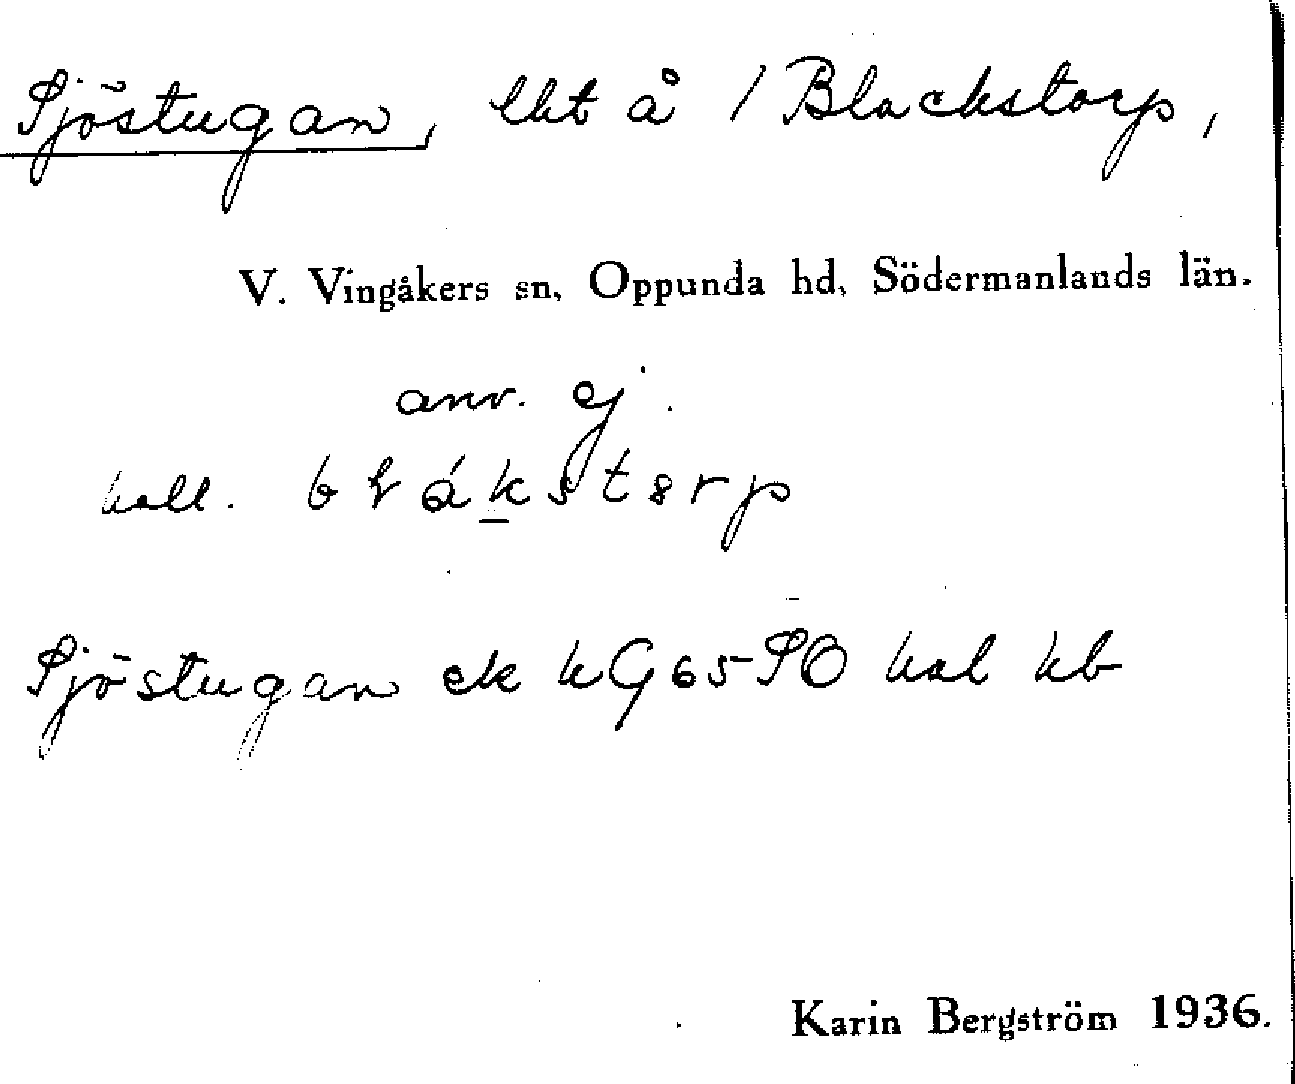 Sjöstugan, lht å / Blackstorp,
V. Vingåkers sn, Oppunda hd, Södermanlands län.
anv. ej.
kall.
Sjöstugan ek hG65 SO kal hb
Karin Bergström 1936.